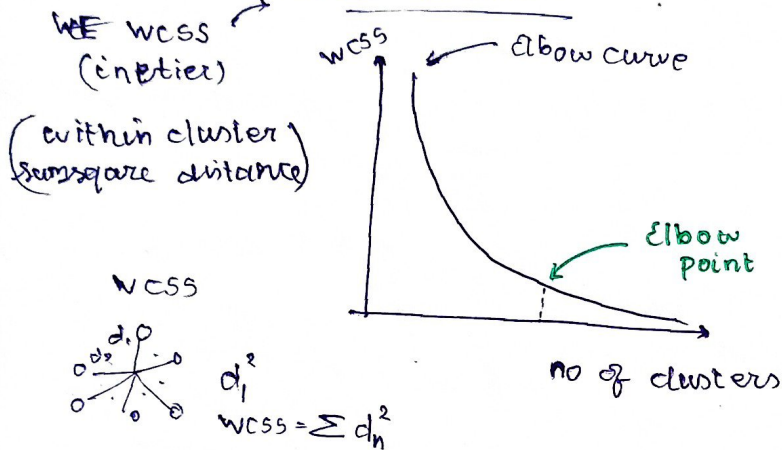 WE WCSS
(inetier)
(within cluster
sumsqare distance)
WCSS
Elbow curve
Elbow
point
no of clusters
WCSS
d₁
d₂
d₁²
WCSS = Σ dₙ²